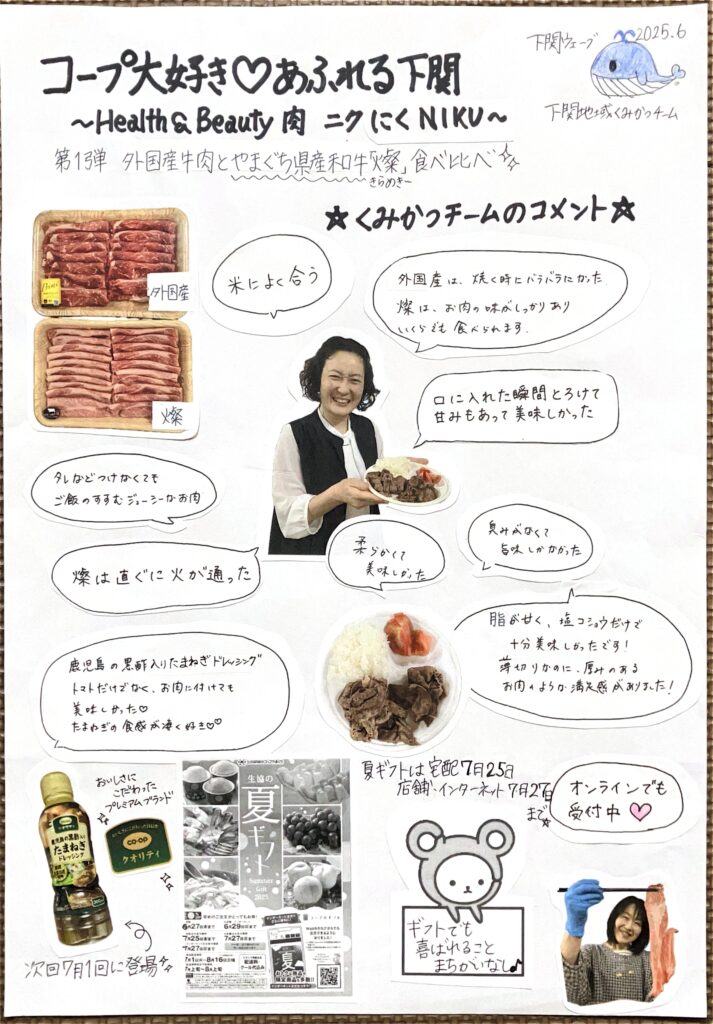 下関ウェーブ 2025.6
コープ大好き♡あふれる下関
下関地域くみかつチーム
～Health & Beauty 肉 ニク にく NIKU～
第1弾 外国産牛肉とやまぐち県産和牛「燦」食べ比べ☆☆
きらめき
☆くみかつチームのコメント☆
外国産
燦
米によく合う
外国産は、焼く時にバラバラになった
燦は、お肉の味がしっかりあり
いくらでも食べられます。
口に入れた瞬間とろけて
甘みもあって美味しかった
タレなどつけなくても
ご飯のすすむジューシーなお肉
燦は直ぐに火が通った
柔らかくて
美味しかった
臭みがなくて
旨味しかなかった
脂が甘く、塩コショウだけで
十分美味しかったです!
薄切りなのに、厚みのある
お肉のような満足感がありました!
鹿児島の黒酢入りたまねぎドレッシング
トマトだけでなく、お肉に付けても
美味しかった♡
たまねぎの食感が凄く好き♡♡
おいしさに
こだわった
プレミアムブランド
CO・OP
クオリティ
鹿児島の黒酢入り
たまねぎ
ドレッシング
次回7月1回に登場☆
生協の
夏ギフト
Summer
Gift
2025
夏ギフトは宅配7月25日
店舗・インターネット7月27日
まで☆
オンラインでも
受付中♡
ギフトでも
喜ばれること
まちがいなし♪